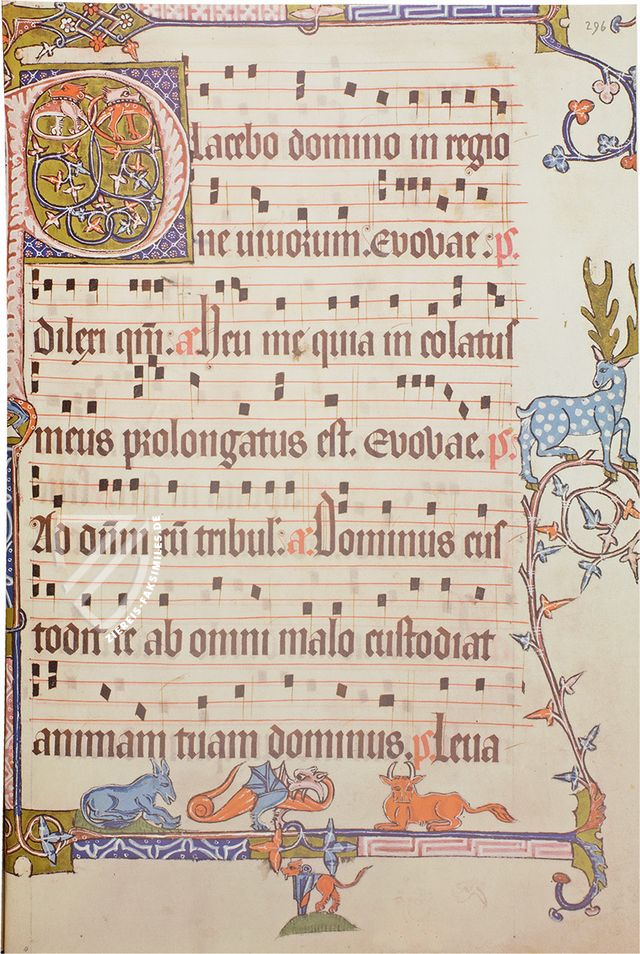 296
Placebo domino in regio
ne uiuorum. Evovae. ps.
Dilexi qm̄. a. Heu me quia in colatus
meus prolongatus est. Evovae. ps.
Ad dn̄m cū tribul. a. Dominus cus
todit te ab omni malo custodiat
animam tuam dominus. ps Leua
ZIEREIS-FAKSIMILES.DE